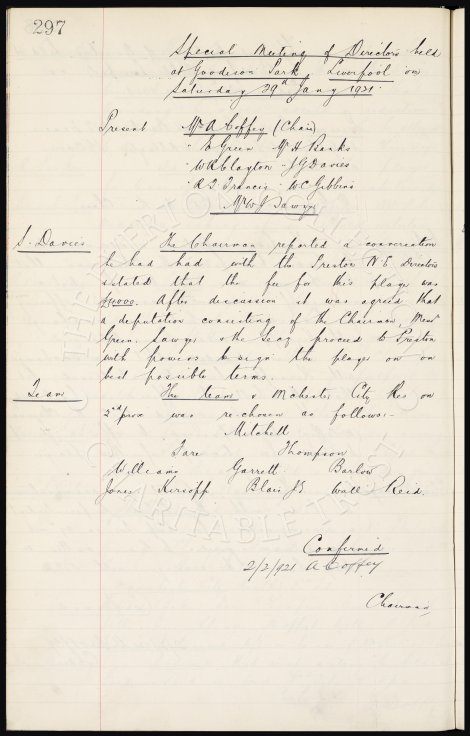 297
Special Meeting of Directors held
at Goodison Park, Liverpool on
Saturday 29th Jany 1921.
Present Mr A Coffey (Chair)
" E Green Mr H Banks
" W R Clayton " J G Davies
" R T Francis " W. C. Gibbins
Mr W J Sawyer
S. Davies The Chairman reported a conversation
he had had with the Preston N. E. Directors
& stated that the fee for this player was
£4000. After discussion it was agreed that
a deputation consisting of the Chairman, Messrs
Green, Sawyer & the Secy proceed to Preston
with powers to sign the player on on
best possible terms.
Team The team v Mchester City Res on
2nd prox was re-chosen as follows:-
Mitchell
Fare Thompson
Williams Garrett Barlow
Jones Kirsopp Blair J. Wall Reid.
Confirmed
2/2/1921 A Coffey
Chairman
THE EVERTON
CHARITABLE TRUST